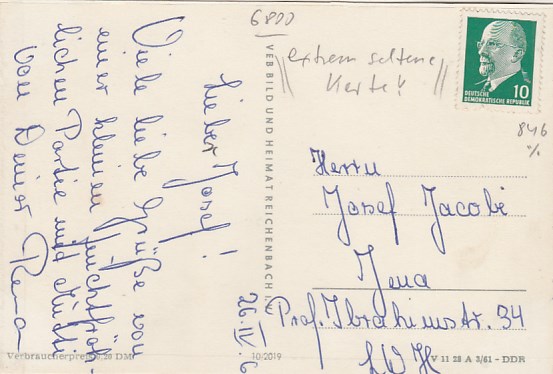 6800
Lieber Josef!
Viele liebe Grüße von
einer kleinen feuchtfröh-
lichen Partie mit Mutti
von Deiner Rena
26. IV. 6
VEB BILD UND HEIMAT REICHENBACH
extrem seltene
Karte!
DEUTSCHE
DEMOKRATISCHE REPUBLIK
10
846
%
Herrn
Josef Jacobi
Jena
Prof. Ibrahimstr. 34
LWH
Verbraucherpreis 0,20 DM
10/2019
V 11 28 A 3/61 – DDR